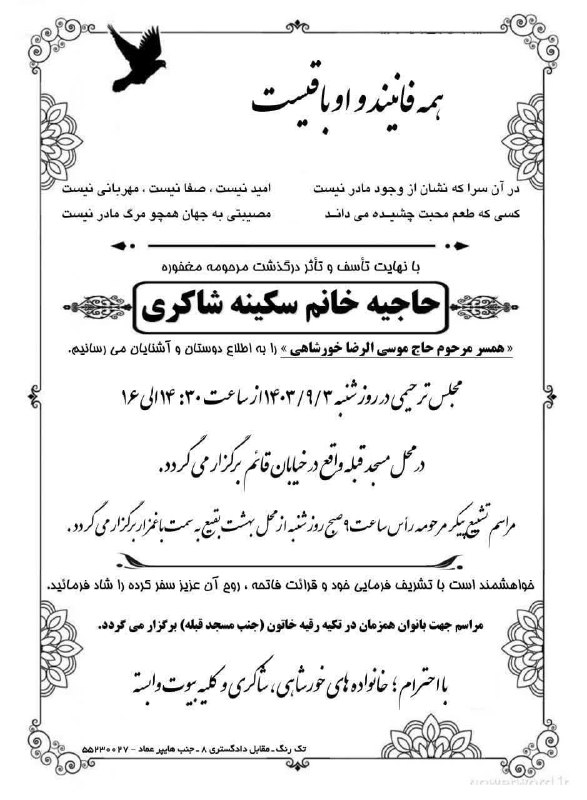 همه فانیند و او باقیست
در آن سرا که نشان از وجود مادر نیست امید نیست ، صفا نیست ، مهربانی نیست
کسی که طعم محبت چشیده می داند مصیبتی به جهان همچو مرگ مادر نیست
با نهایت تأسف و تأثر درگذشت مرحومه مغفوره
حاجیه خانم سکینه شاکری
« همسر مرحوم حاج موسی الرضا خورشاهی » را به اطلاع دوستان و آشنایان می رسانیم.
مجلس ترحیمی در روز شنبه ۱۴۰۳/۹/۳ از ساعت ۱۴:۳۰ الی ۱۶
در محل مسجد قبله واقع در خیابان قائم برگزار می گردد.
مراسم تشییع پیکر مرحومه رأس ساعت ۹ صبح روز شنبه از محل بهشت بقیع به سمت باغمزار برگزار می گردد.
خواهشمند است با تشریف فرمایی خود و قرائت فاتحه ، روح آن عزیز سفر کرده را شاد فرمائید.
مراسم جهت بانوان همزمان در تکیه رقیه خاتون (جنب مسجد قبله) برگزار می گردد.
با احترام ؛ خانواده های خورشاهی، شاکری و کلیه بیوت وابسته
تک رنگ ـ مقابل دادگستری ۸ ـ جنب هایپر عماد - ۵۵۲۳۰۰۲۷